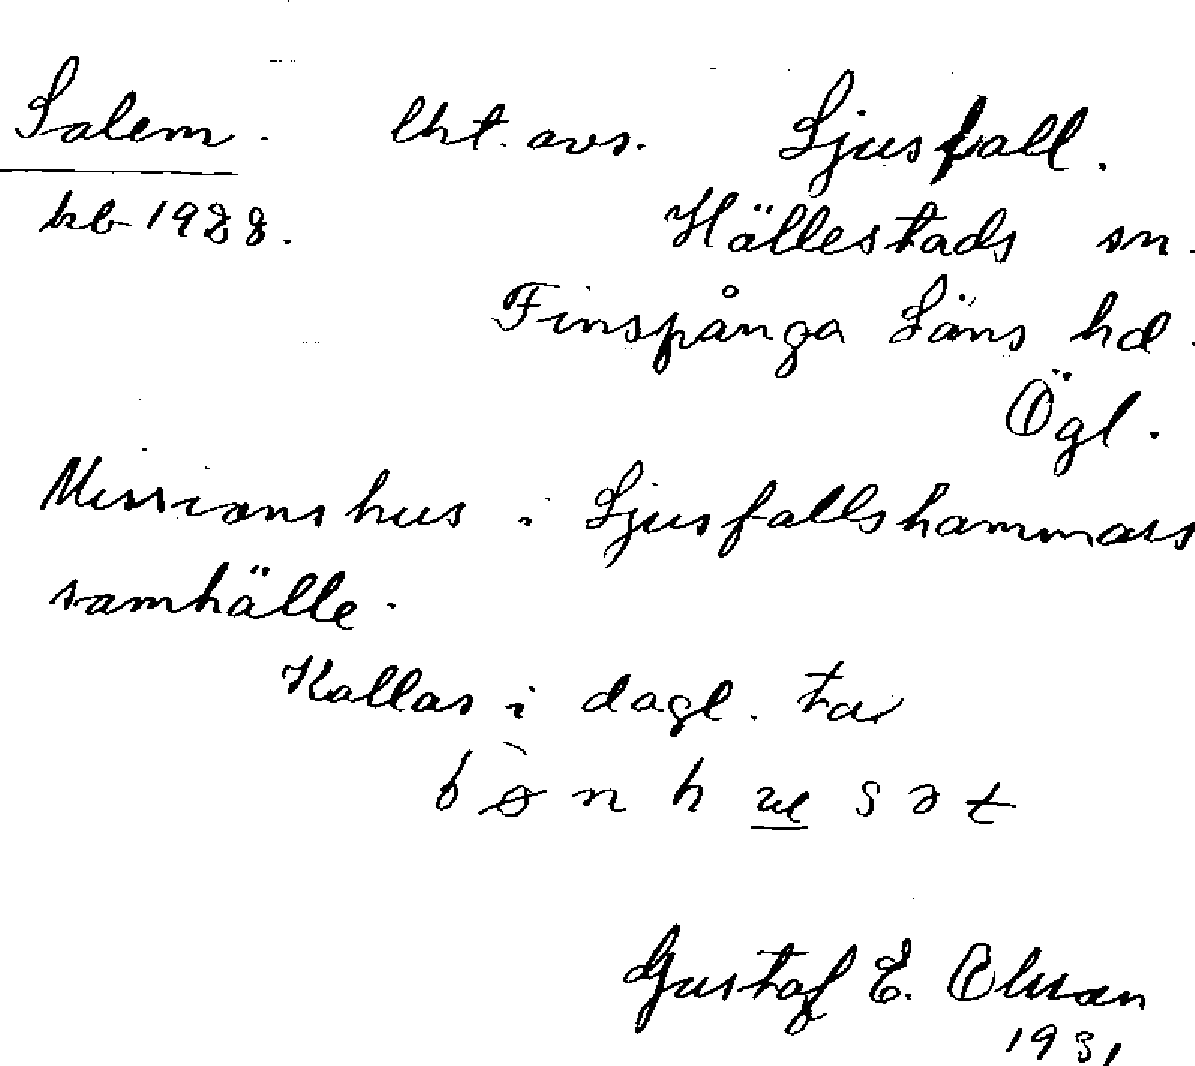 Salem. Lht. avs. Ljusfall.
kb 1928. Hällestads sn.
Finspånga Läns hd.
Ögl.
Missionshus i Ljusfallshammars
samhälle.
Kallas i dagl. tal
Gustaf E. Olsson
1931